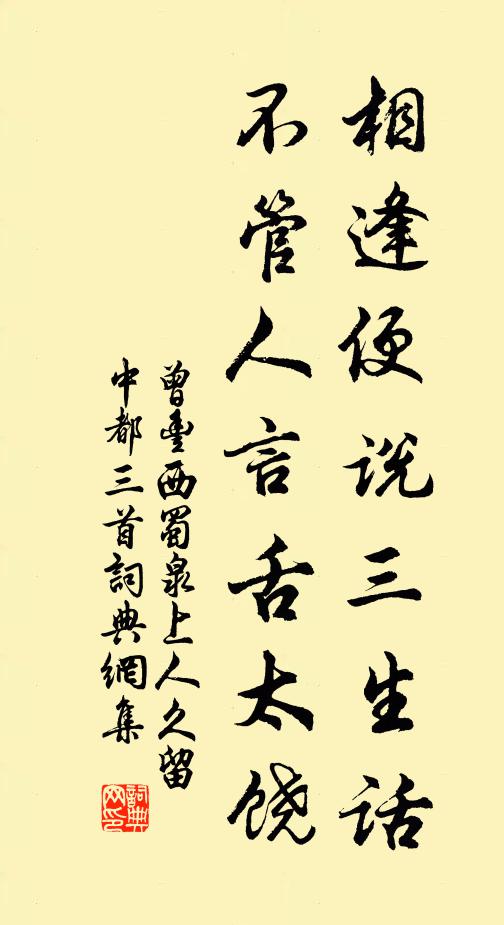 相逢便说三生话
不管人言舌太饶
曾豊西蜀泉上人久留
中都三首詞典網集
詞典
网印